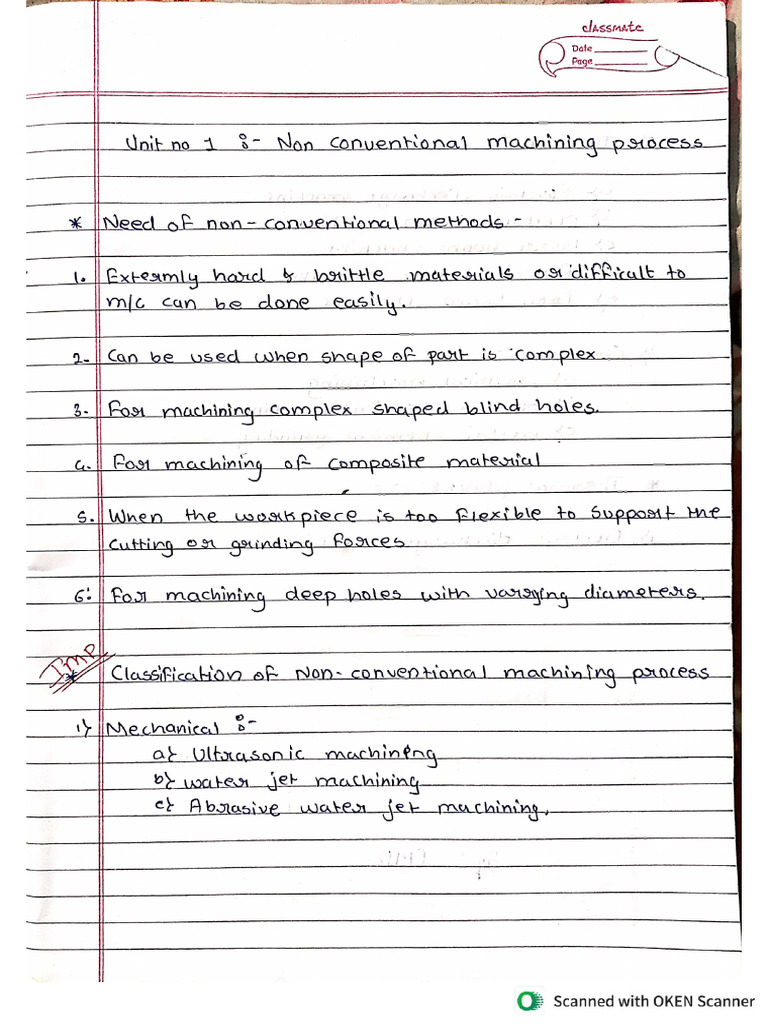 classmate
Date
Page
Unit no 1 :- Non conventional machining process
* Need of non-conventional methods -
1. Extermly hard & brittle materials or difficult to
m/c can be done easily.
2- Can be used when shape of part is complex
3. For machining complex shaped blind holes.
4. For machining of composite material
5. When the workpiece is too flexible to support the
cutting or grinding forces
6: For machining deep holes with varying diameters.
Imp
* Classification of Non-conventional machining process
1) Mechanical :-
a) Ultrasonic machining
b) water jet machining
c) Abrasive water jet machining.
Scanned with OKEN Scanner